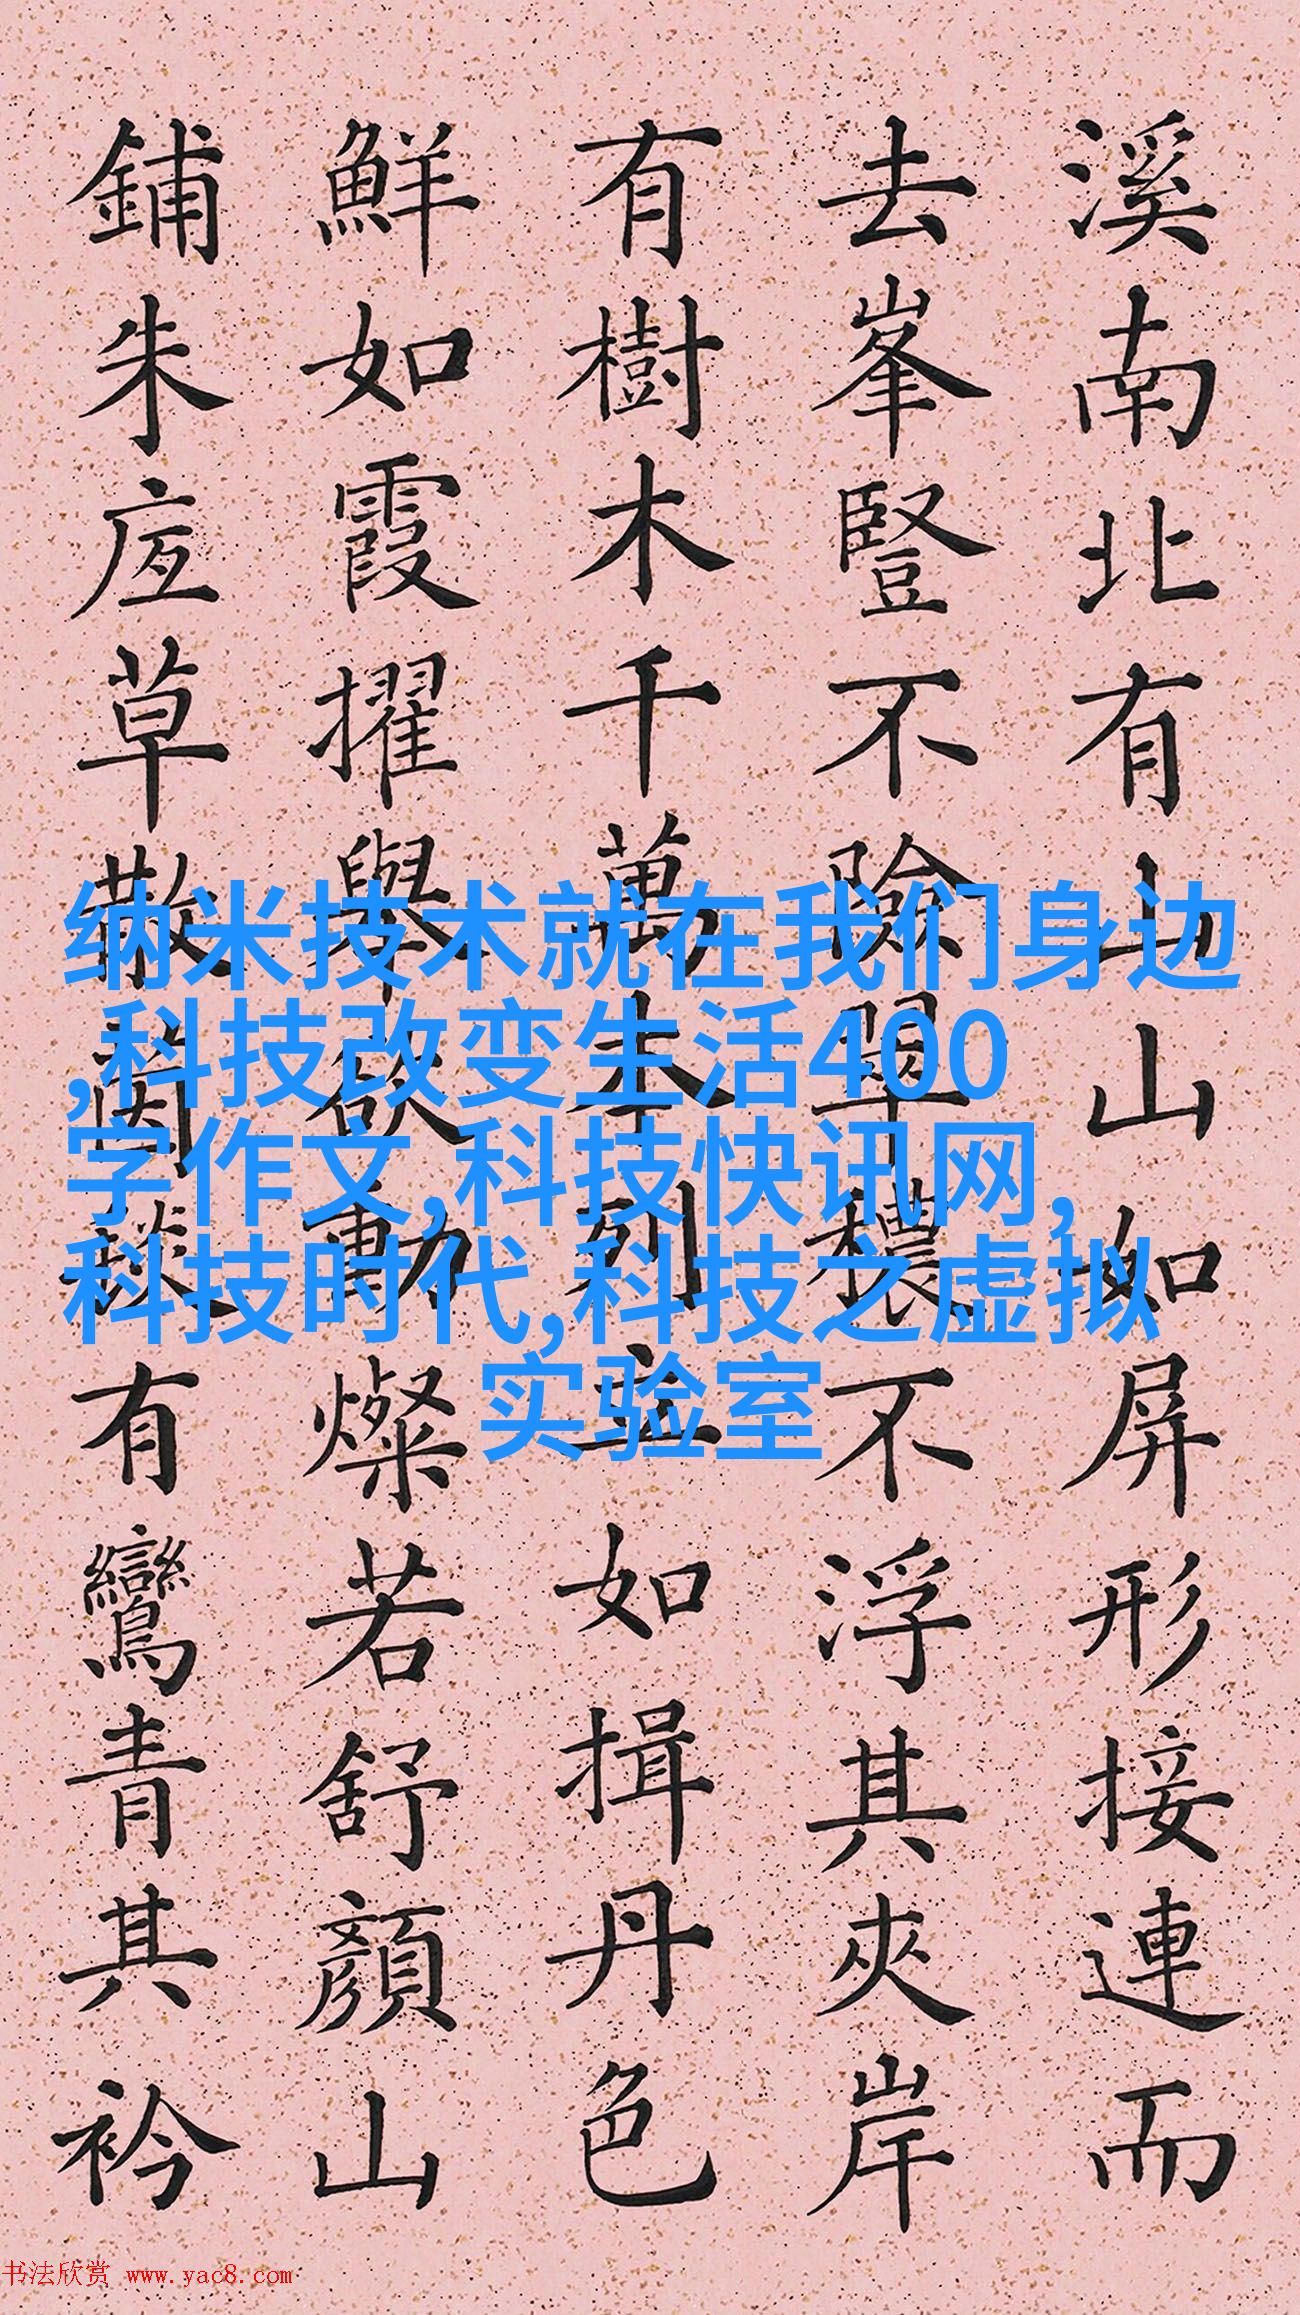 溪南北有山山如屏形接連而
去峯豎不險翠穠不浮其夾岸
有樹木千萬本列立如揖丹色
鮮如霞擢舉欲動燦若舒顏山
鋪朱底草散茵毯有鸞青其衿
纳米技术就在我们身边
,科技改变生活400
字作文,科技快讯网,
科技时代,科技之虚拟
实验室
书法欣赏 www.yac8.com